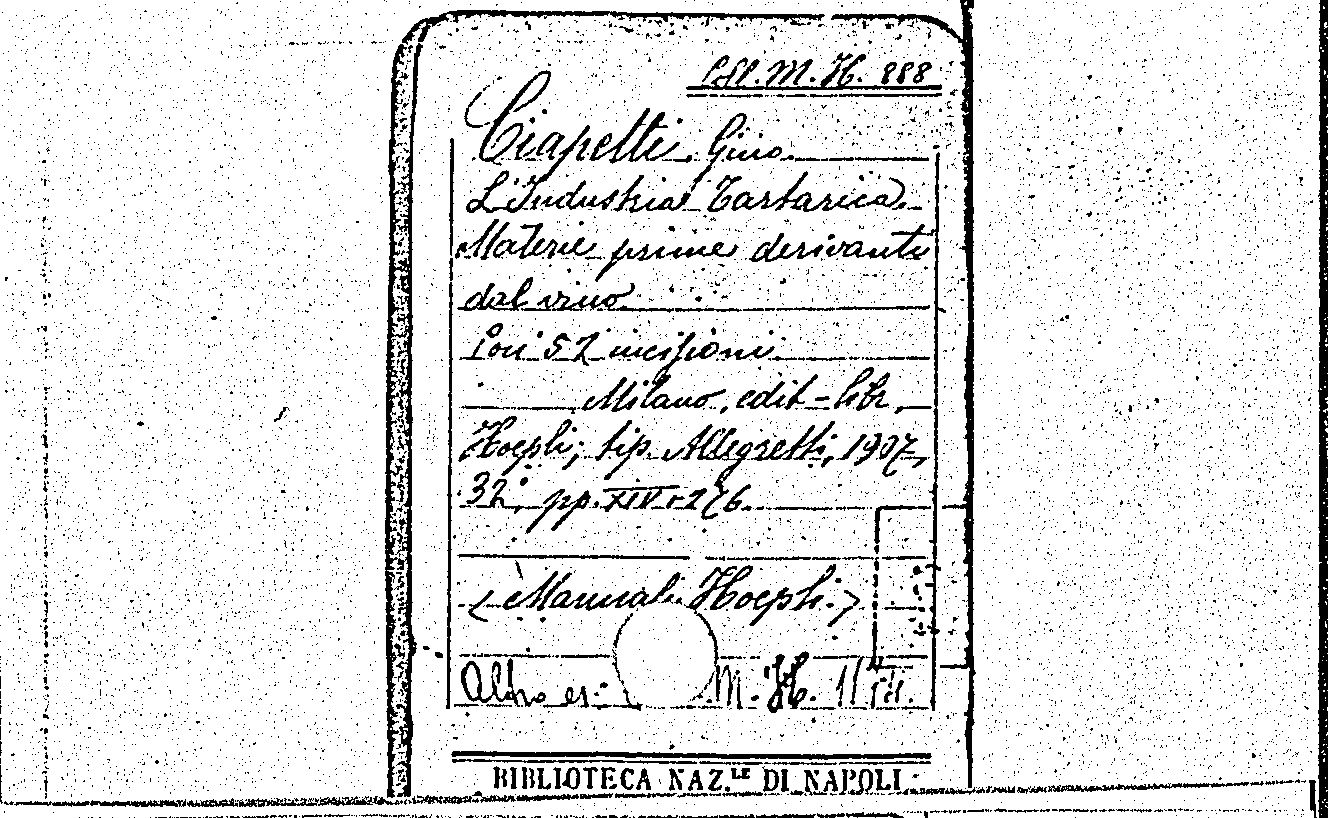 M. H. 888
Ciapetti Gino.
L'Industria Tartarica.
Materie prime derivanti
dal vino.
Con 57 incisioni.
Milano, edit-libr.
Hoepli; tip. Allegretti, 1907,
32°, pp. XIV+276.
(Manuali Hoepli.)
Altro es: M. H.
BIBLIOTECA NAZ.LE DI NAPOLI